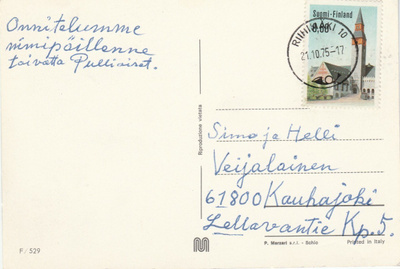 Onnitelumme
nimipäillenne
toivotta Pulliaiset.
Suomi-Finland
0,80
RIIHIMÄKI 10
21.10.75-17
Riproduzione vietata
Simo ja Helli
Veijalainen
61800 Kauhajoki
Lellavantie Kp. 5.
F/529
P. Marzari s.r.l. - Schio
Printed in Italy